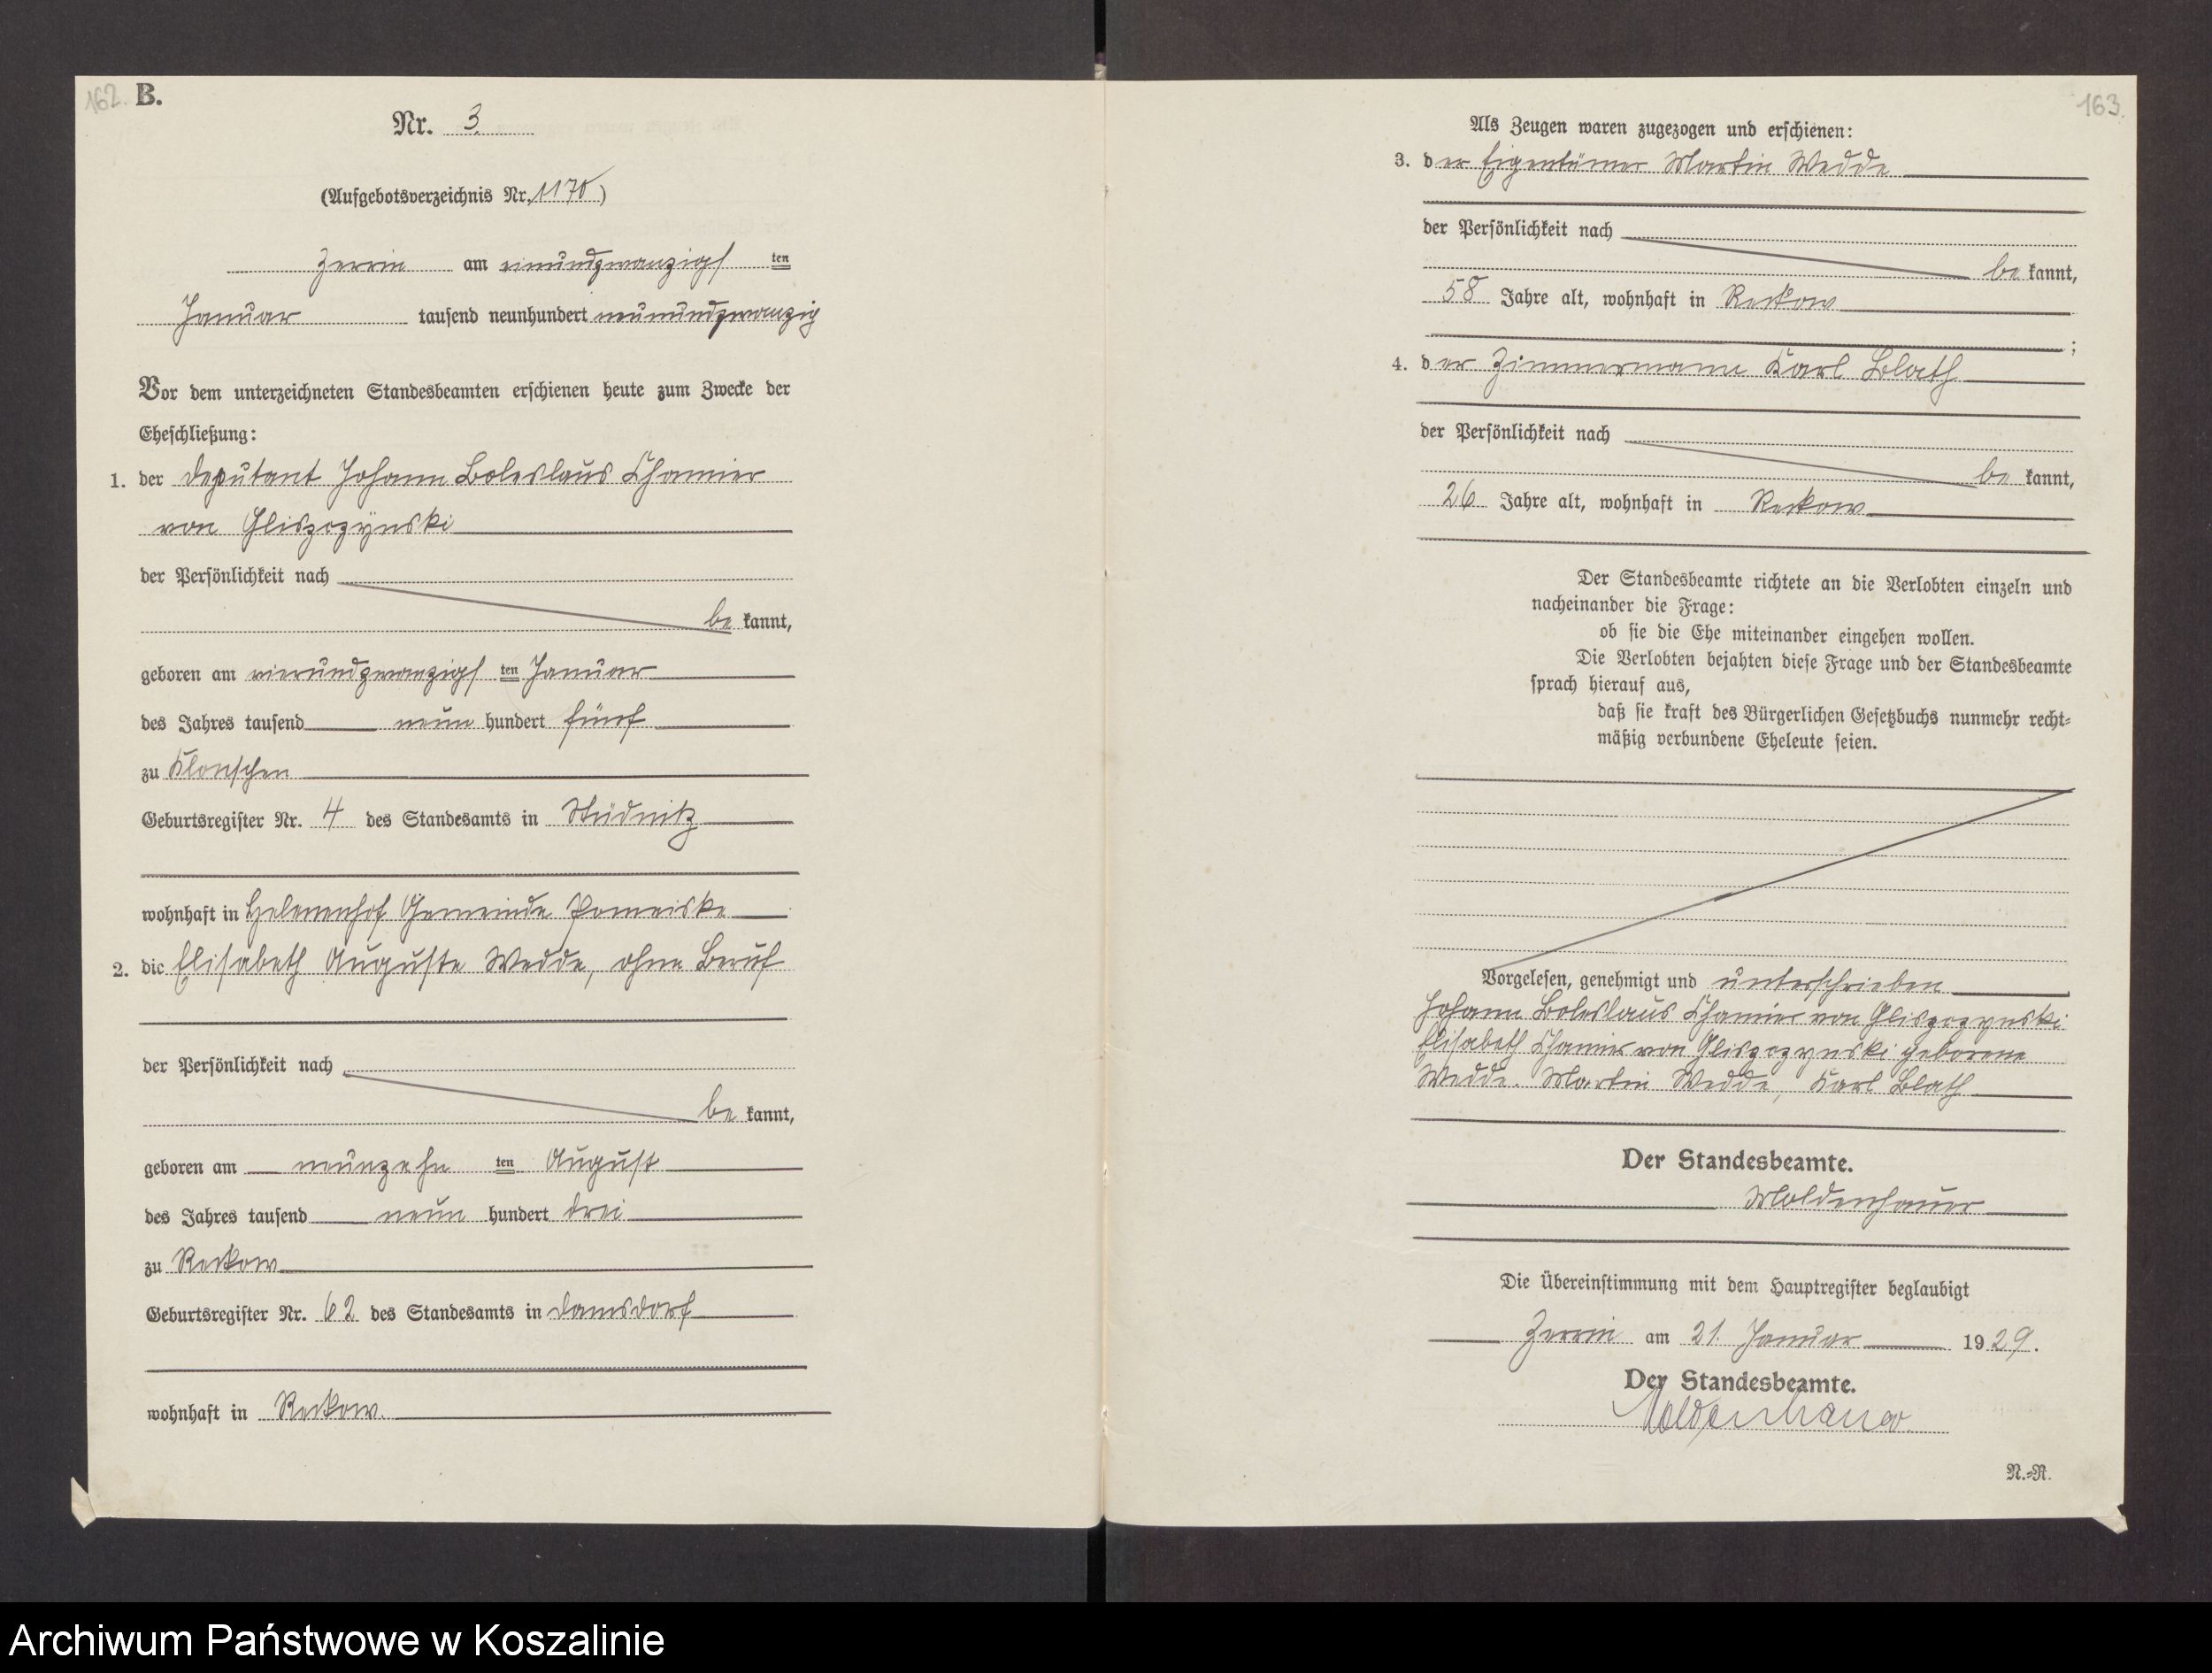 162. B.
Nr. 3.
(Aufgebotsverzeichnis Nr. 1170)
Zerrin am einundzwanzigsten
Januar tausend neunhundert neunundzwanzig
Vor dem unterzeichneten Standesbeamten erschienen heute zum Zwecke der
Eheschließung:
1. der Deputant Johann Boleslaus Chamier
von Gliszczynski
der Persönlichkeit nach
be kannt,
geboren am vierundzwanzigsten Januar
des Jahres tausend neun hundert fünf
zu Klonschen
Geburtsregister Nr. 4 des Standesamts in Stüdnitz
wohnhaft in Helenenhof Gemeinde Pomeiske
2. die Elisabeth Auguste Wedde, ohne Beruf
der Persönlichkeit nach
be kannt,
geboren am neunzehn ten August
des Jahres tausend neun hundert drei
zu Reckow
Geburtsregister Nr. 62 des Standesamts in Damsdorf
wohnhaft in Reckow
163.
Als Zeugen waren zugezogen und erschienen:
3. der Eigentümer Martin Wedde
der Persönlichkeit nach
be kannt,
58 Jahre alt, wohnhaft in Reckow
;
4. der Zimmermann Karl Blath
der Persönlichkeit nach
be kannt,
26 Jahre alt, wohnhaft in Reckow
Der Standesbeamte richtete an die Verlobten einzeln und
nacheinander die Frage:
ob sie die Ehe miteinander eingehen wollen.
Die Verlobten bejahten diese Frage und der Standesbeamte
sprach hierauf aus,
daß sie kraft des Bürgerlichen Gesetzbuchs nunmehr recht-
mäßig verbundene Eheleute seien.
Vorgelesen, genehmigt und unterschrieben
Johann Boleslaus Chamier von Gliszczynski
Elisabeth Chamier von Gliszczynski geborene
Wedde. Martin Wedde, Karl Blath
Der Standesbeamte.
Moldenhauer
Die Übereinstimmung mit dem Hauptregister beglaubigt
Zerrin am 21. Januar 1929.
Der Standesbeamte.
Moldenhauer.
N.-R.
Archiwum Państwowe w Koszalinie